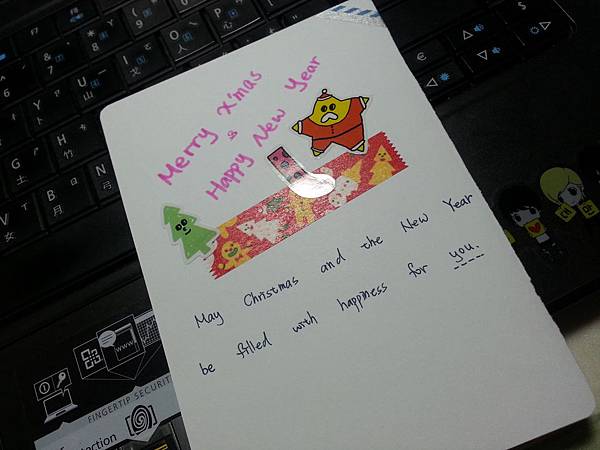 Merry X'mas
&
Happy New Year
May Christmas and the New Year
be filled with happiness for you.
www.
FINGERTIP SECURIT
ection